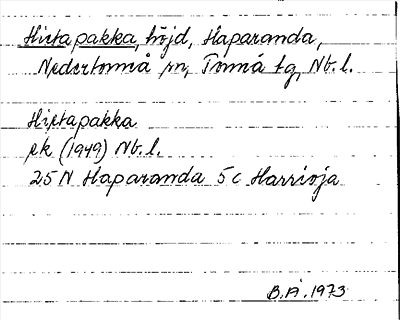 Hirtapakka, höjd, Haparanda,
Nedertorneå sn, Torneå tg, Nb. l.
Hirtapakka
ek (1949) Nb. l.
25 N Haparanda 5 c Harrioja
B.Å. 1973